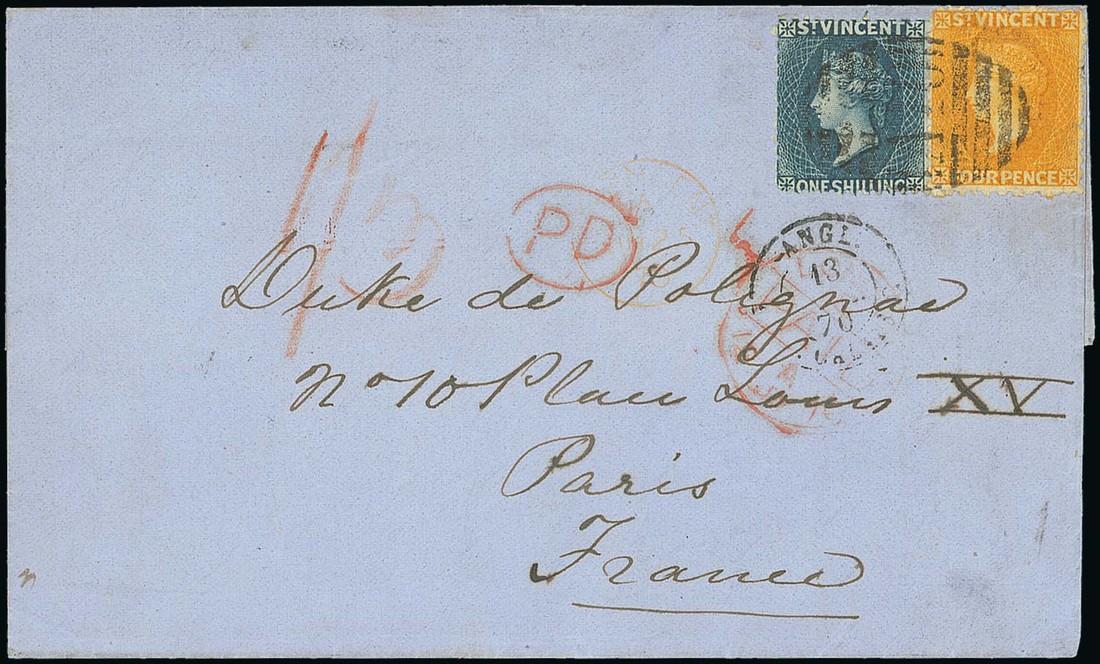 ST VINCENT
ONE SHILLING
ST VINCENT
FOUR PENCE
1/3
PD
ANGL.
13
70
Duke de Polignac
No 10 Place Louis XV
Paris
France